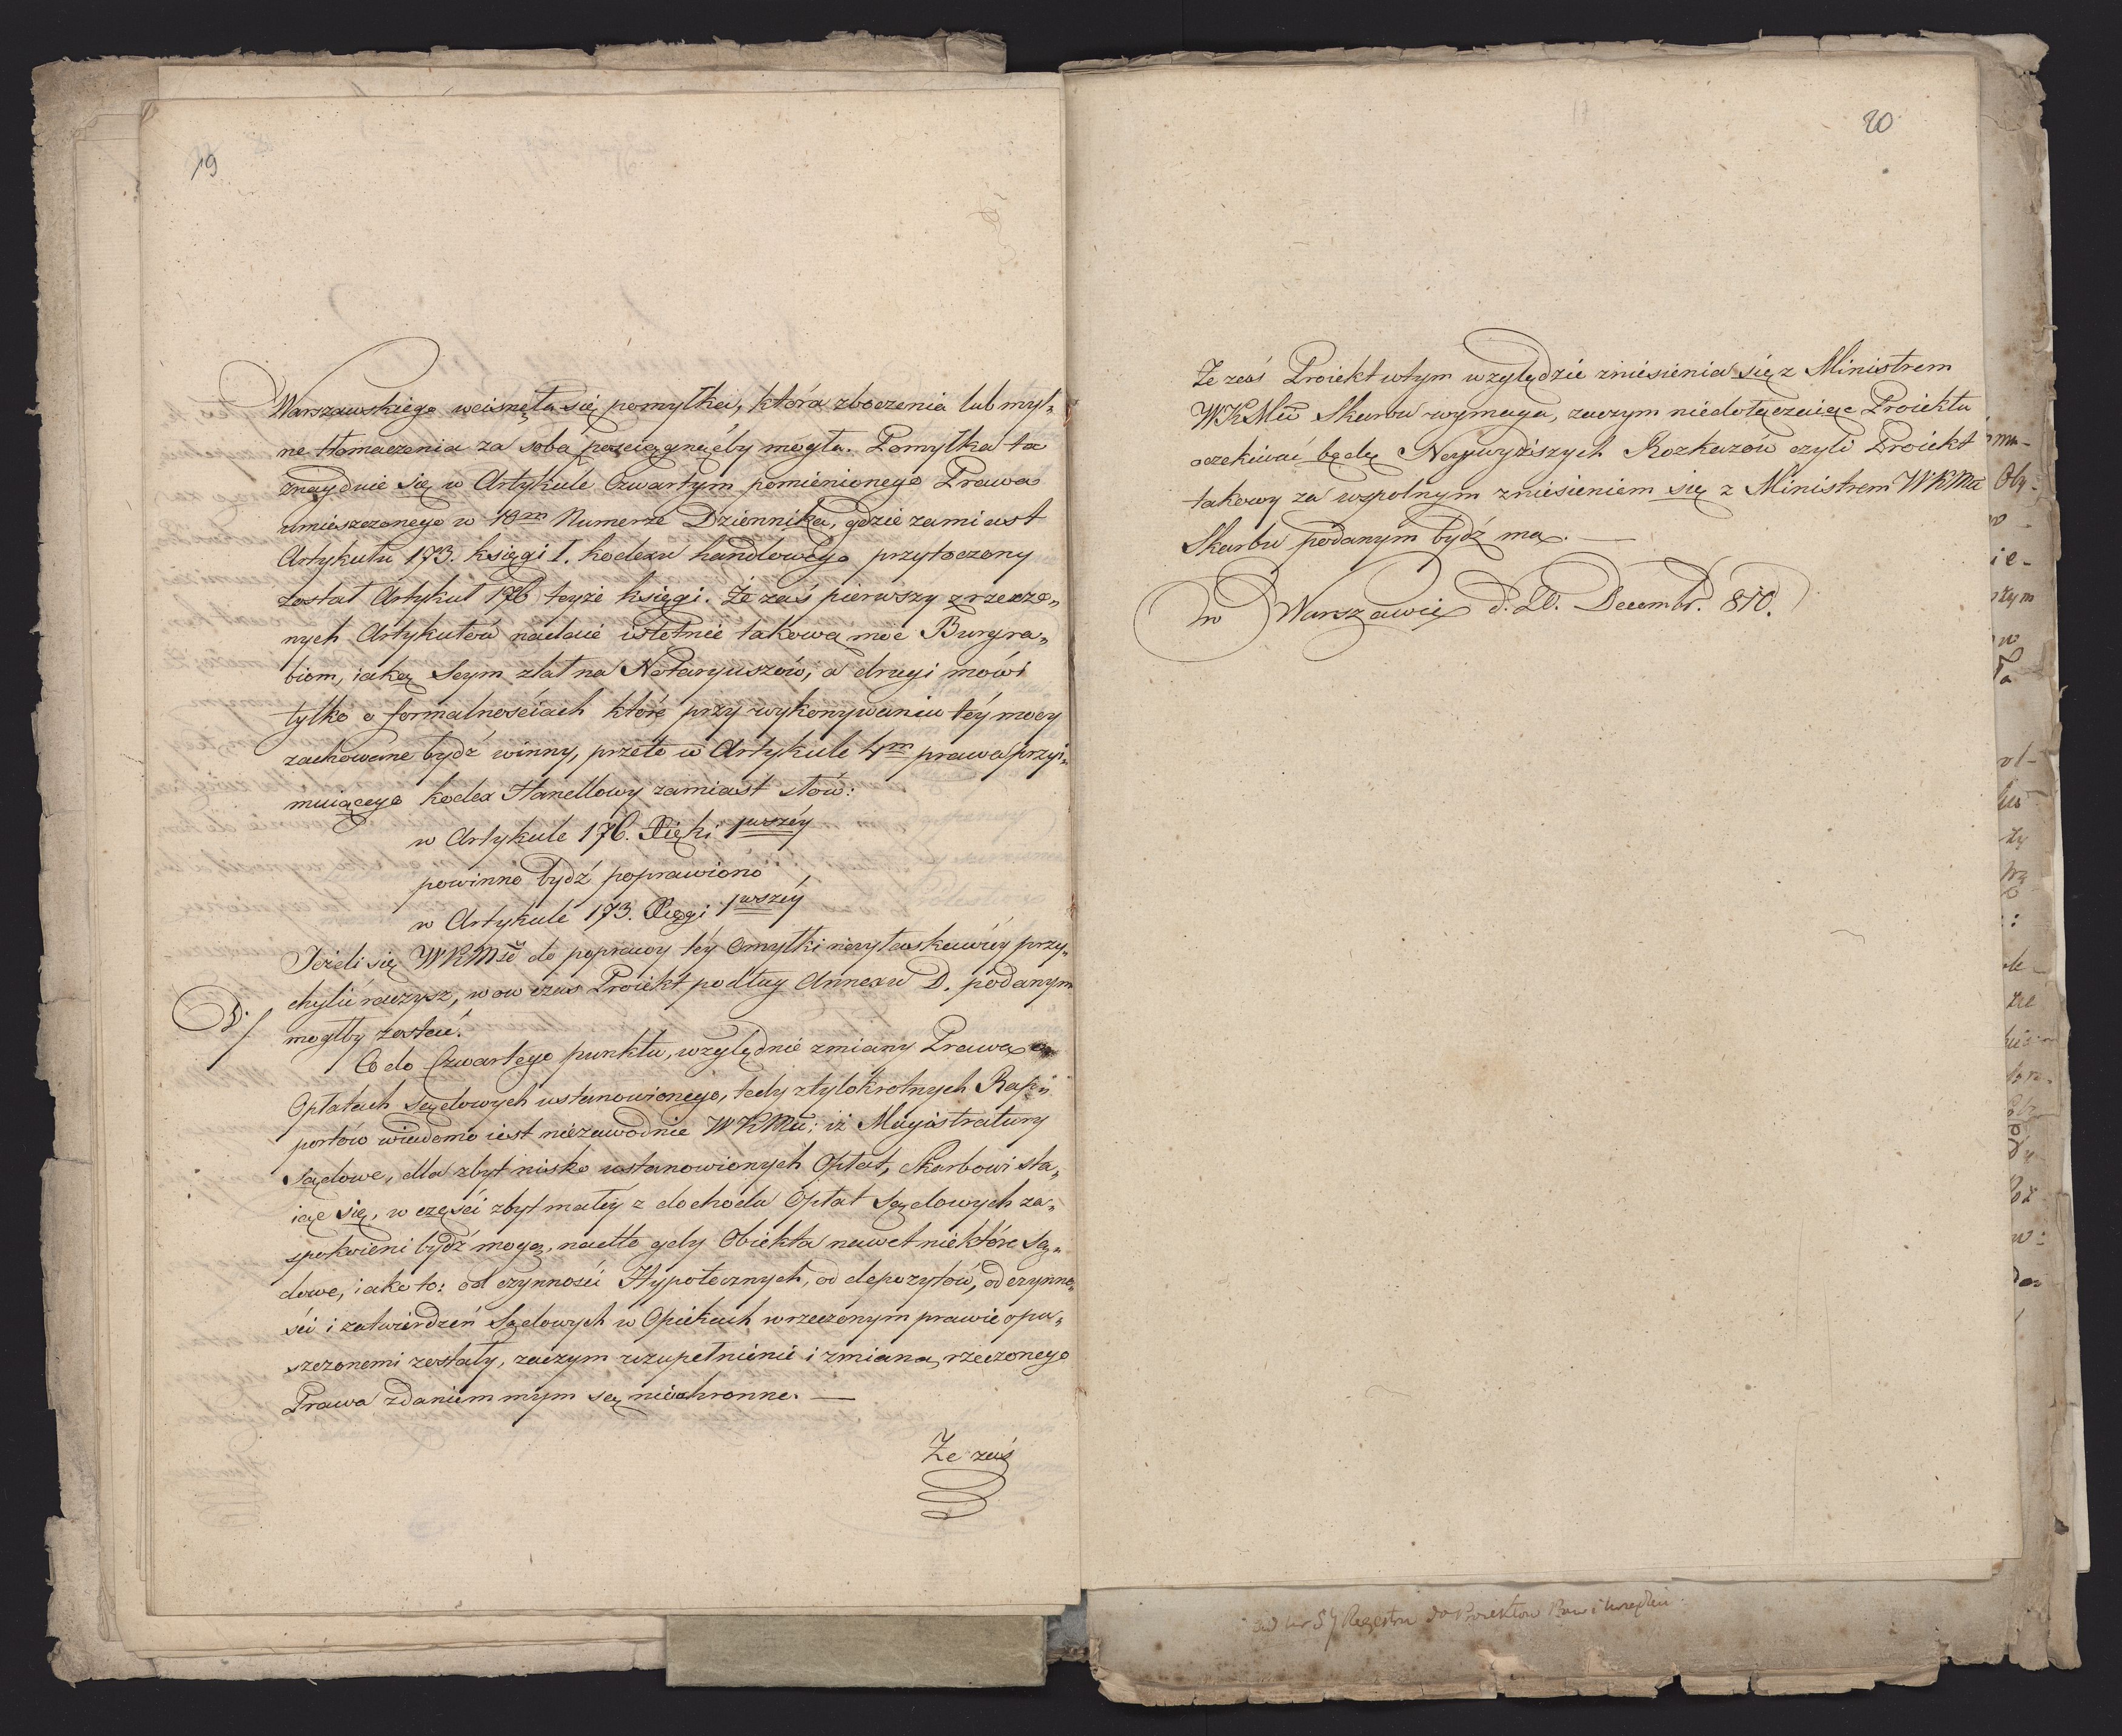 19
Warszawskiego wcisnęła się pomyłka, która zboczenia lub myl„
ne tłomaczenia za sobą pociągnąćby mogła. Pomyłka ta
znayduie się w Artykule Czwartym pomienionego Prawa
umieszczonego w 10m Numerze Dziennika, gdzie zamiast
Artykułu 173. księgi I. kodexu handlowego przytoczony
został Artykuł 176 teyże księgi. Że zaś pierwszy z rzeczo„
nych Artykułów nadaie istotnie takową moc Burgra„
biom, iaką Seym zlał na Notaryuszów, a drugi mówi
tylko o formalnościach które przy wykonywaniu téy mocy
zachowane bydź winny, przeto w Artykule 4m prawa przyi„
muiącego kodex Handlowy zamiast słów:
w Artykule 176. Xięki 1wszéy
powinno bydź poprawiono
w Artykule 173. Xięgi 1wszéy
Jeżeli się WKMść do poprawy téy Omyłki nayłaskawiéy przy„
chylić raczysz, wow czas Proiekt podług Annexu D. podanym
D./ mogłby zostać.
Co do Czwartego punktu, względnie zmiany Prawa o
Opłatach Sądowych ustanowionego, tedy z tylokrotnych Rap„
portów wiadomo iest niezawodnie WKMci; iż Magistratury
Sądowe, dla zbyt nisko ustanowionych Opłat, Skarbowi sta„
iąc się, w części zbyt małéy z dochodu Opłat Sądowych za„
spokoieni bydź mogą, nadto gdy Obiekta nawet niektóre Są„
dowe, iako to: od czynności Hypotecznych, od depozytów, od czynno„
ści i zatwierdzeń Sądowych w Opiekach w rzeczonym prawie opu„
szczonemi zostały, zaczym uzupełnienie i zmiana rzeczonego
Prawa zdaniem mym są nieochronne. —
Że zaś
20
Że zaś Proiekt w tym względzie zniesienia się z Ministrem
WKMci Skarbu wymaga, zaczym niedołączaiąc Proiektu
oczekiwać będę Naywyższych Rozkazów czyli Proiekt
takowy za wspolnym zniesieniem się z Ministrem WKMci
Skarbu podanym bydź ma. —
w Warszawie d. 20. Decembr. 810.